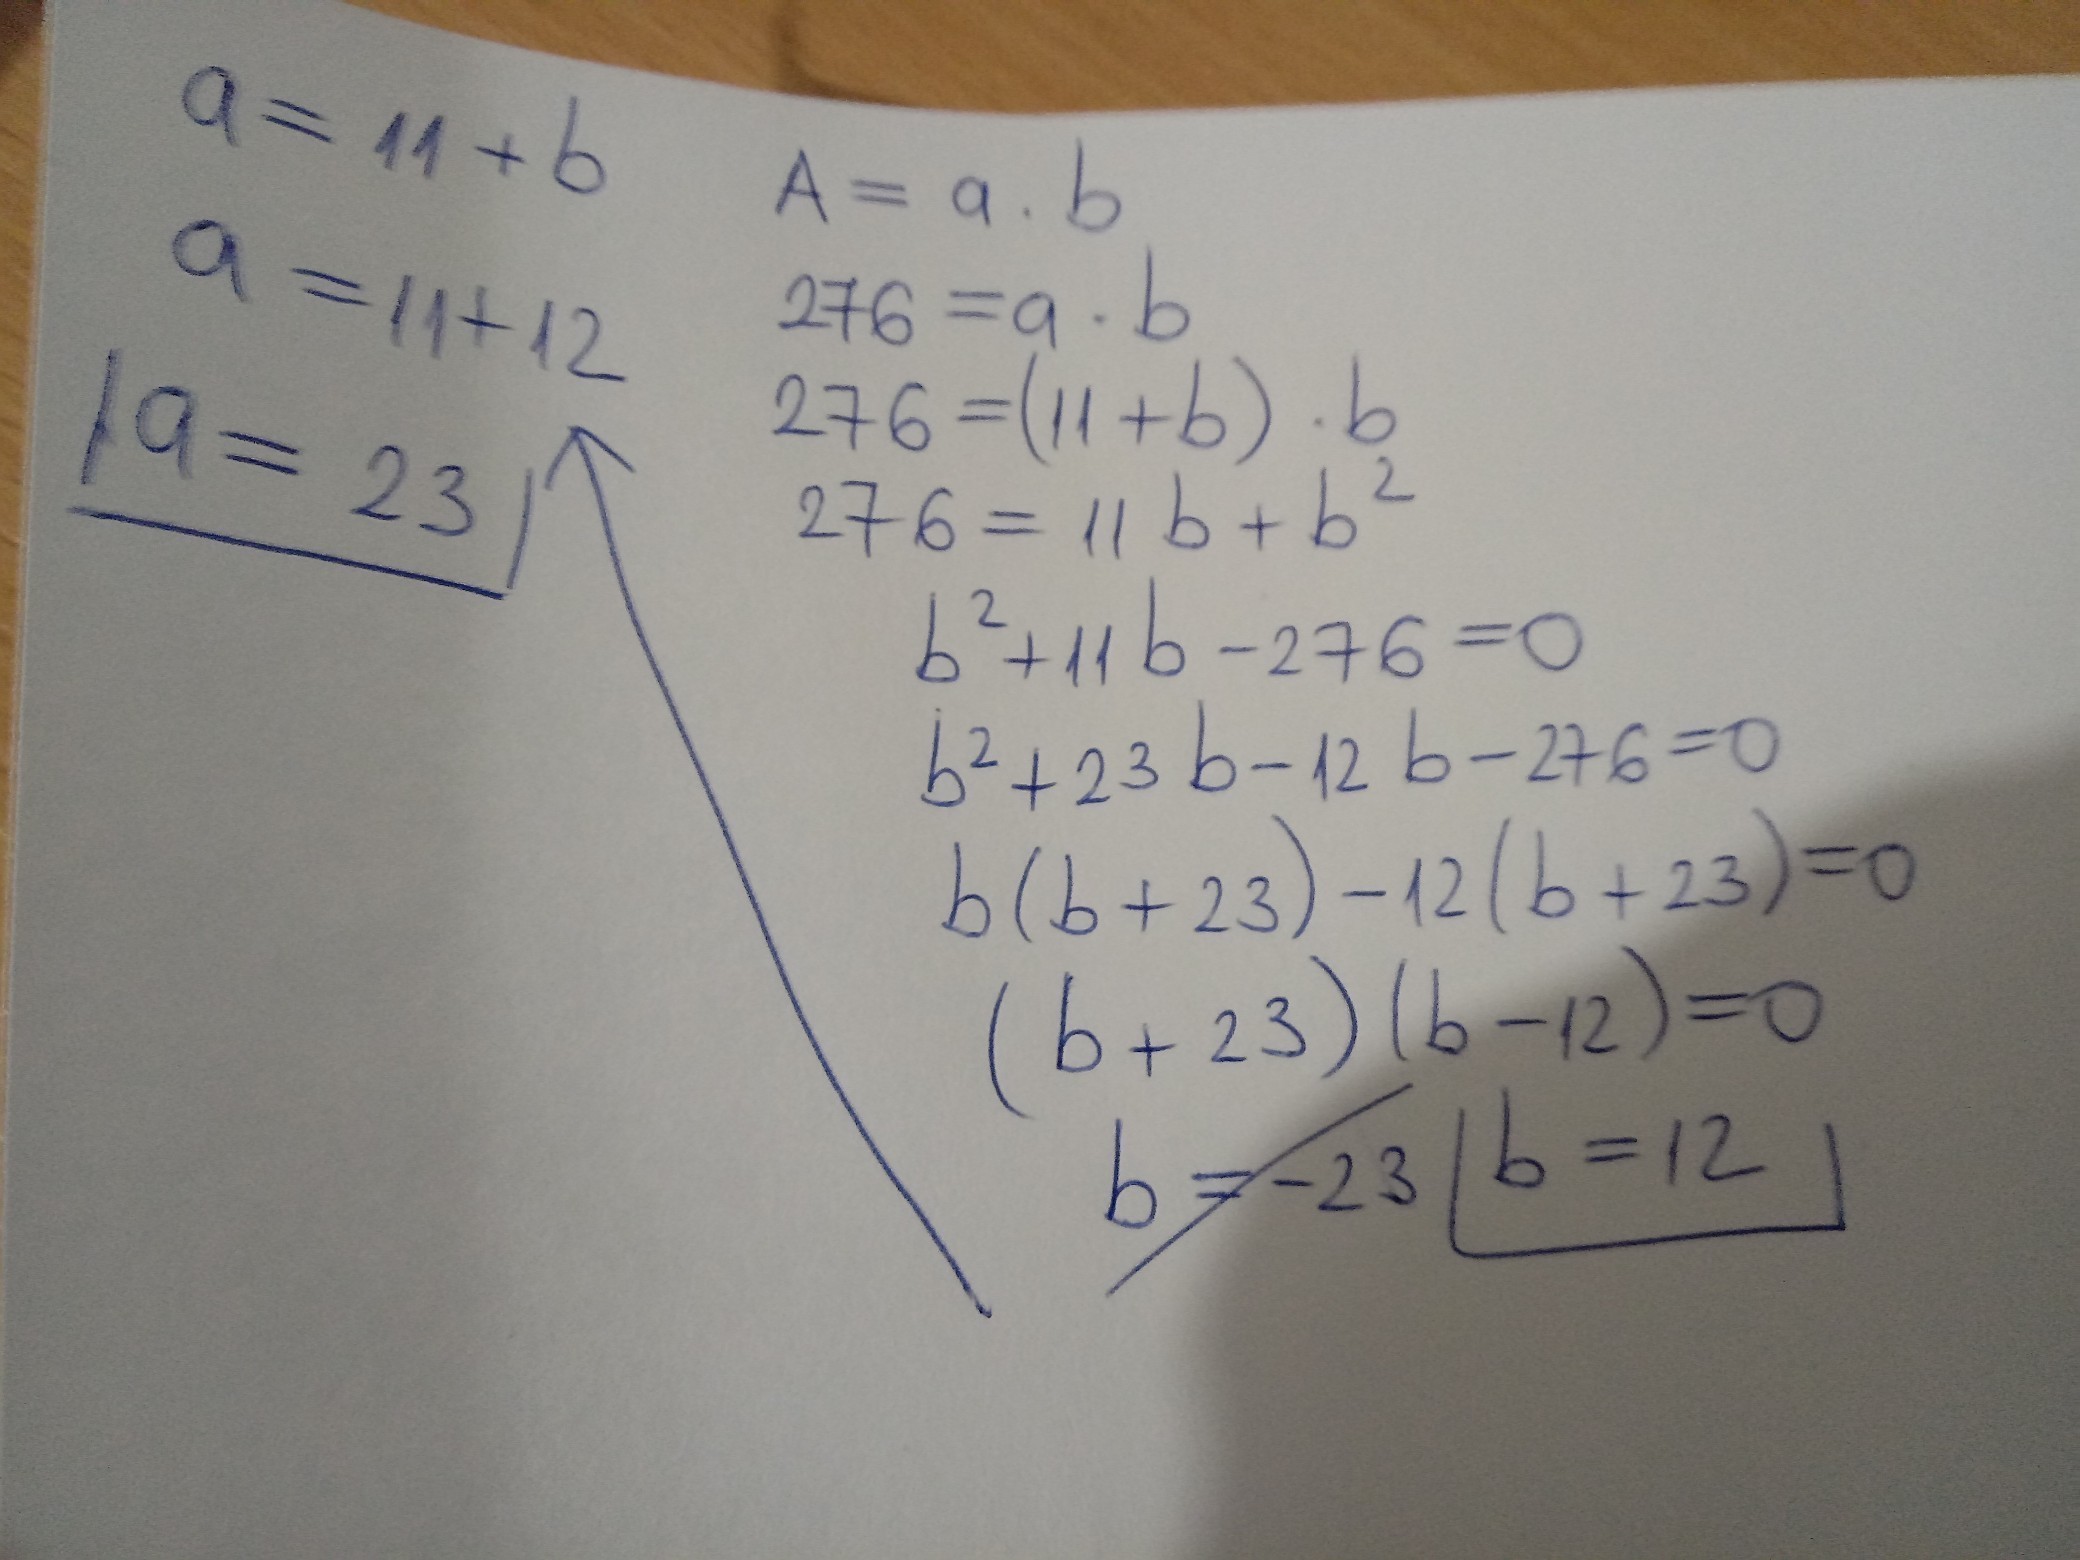 a = 11 + b
a = 11 + 12
a = 23
A = a . b
276 = a . b
276 = (11 + b) . b
276 = 11 b + b²
b² + 11 b - 276 = 0
b² + 23 b - 12 b - 276 = 0
b (b + 23) - 12 (b + 23) = 0
(b + 23) (b - 12) = 0
b = -23 b = 12